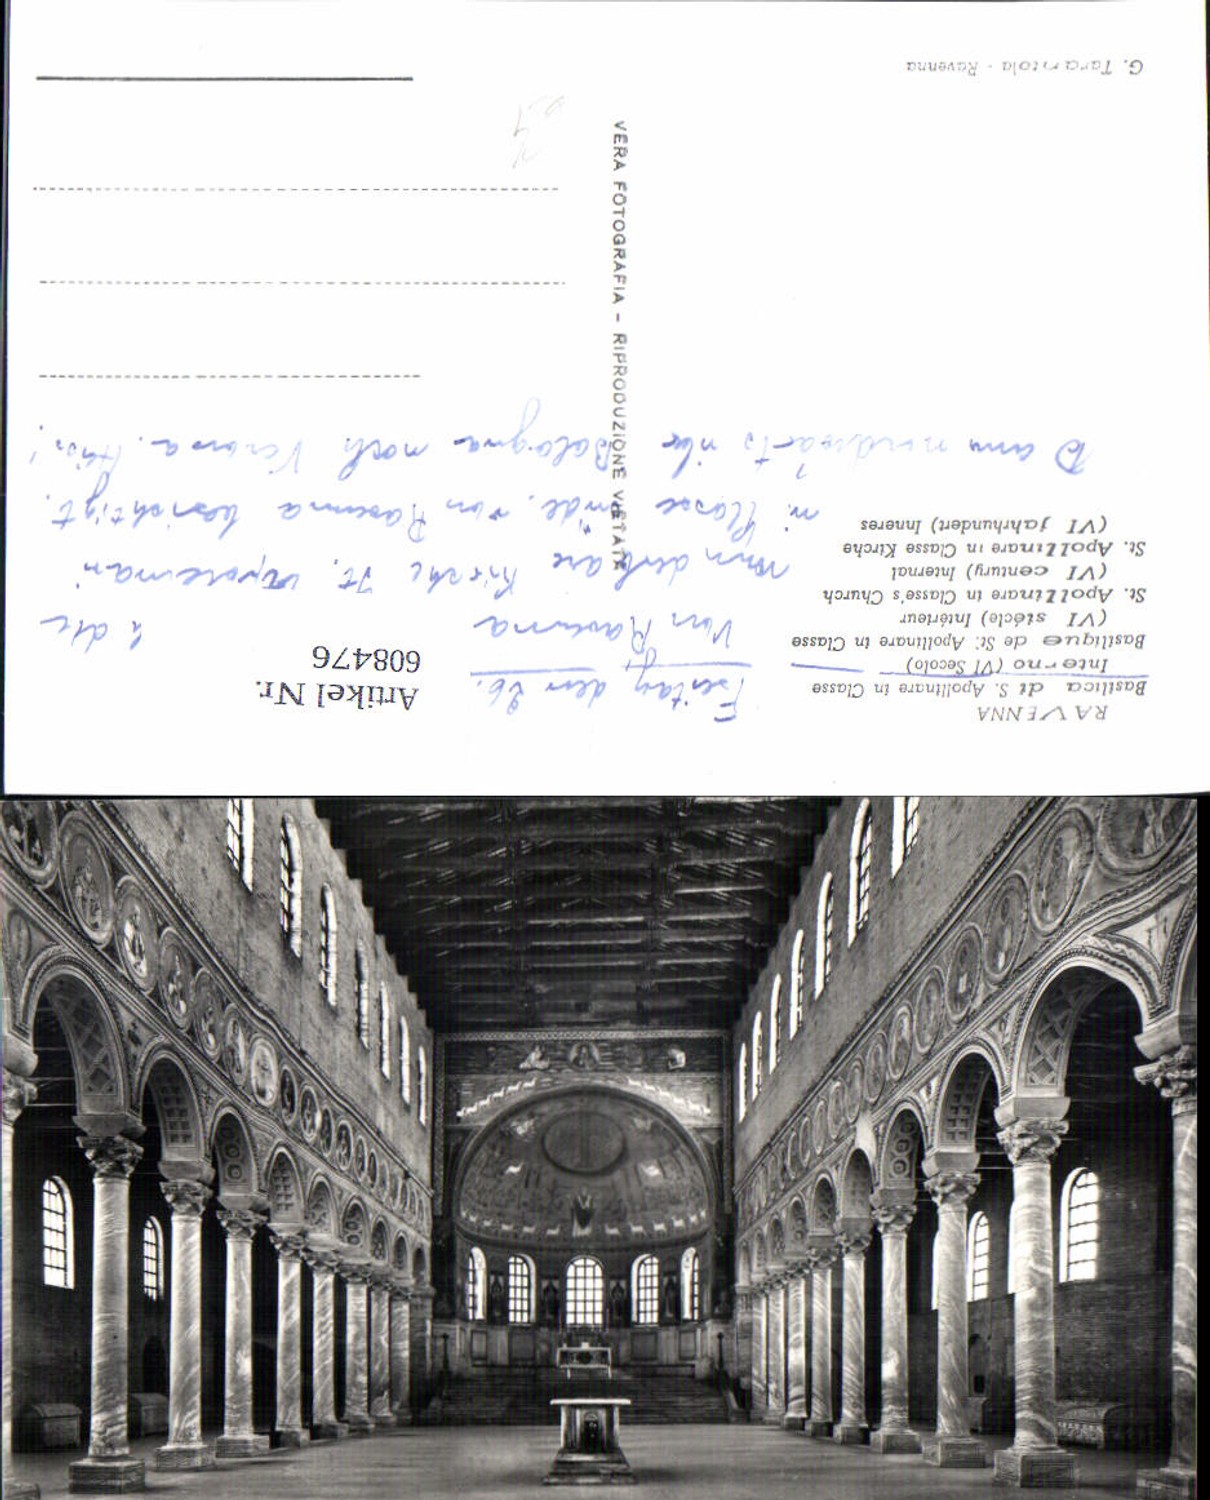 RAVENNA
Basilica di S. Apollinare in Classe
Interno (VI Secolo)
Basilique de St. Apollinare in Classe
(VI siècle) Intérieur
St. Apollinare in Classe's Church
(VI century) Internal
St. Apollinare in Classe Kirche
(VI Jahrhundert) Inneres
G. Tarantola - Ravenna
VERA FOTOGRAFIA - RIPRODUZIONE VIETATA
Artikel Nr.
608476
Freitag den 26.
Von Ravenna
wunderbare Kirche St.
in Classe von Ravenna besichtigt.
Dann nordwärts über Bologna nach Verona.